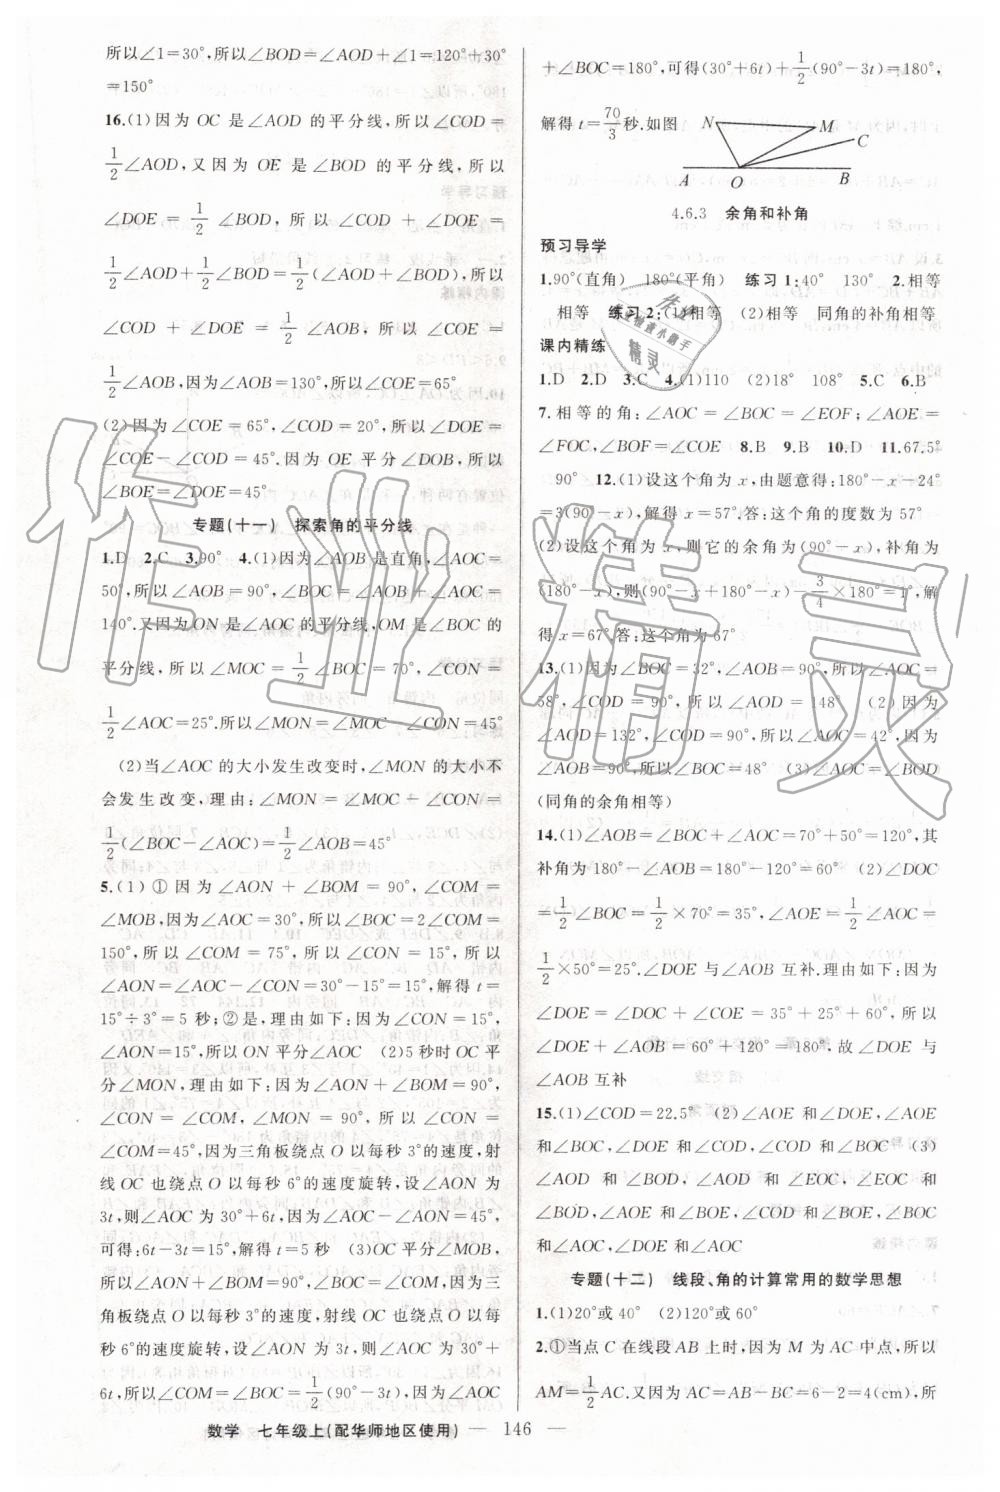 所以∠1=30°,所以∠BOD=∠AOD+∠1=120°+30°
=150°
16.(1)因为 OC 是∠AOD 的平分线,所以∠COD=
1/2∠AOD,又因为 OE 是∠BOD 的平分线,所以
∠DOE=1/2∠BOD,所以∠COD+∠DOE=
1/2∠AOD+1/2∠BOD=1/2(∠AOD+∠BOD),所以
∠COD+∠DOE=1/2∠AOB,所以∠COE=
1/2∠AOB,因为∠AOB=130°,所以∠COE=65°
(2)因为∠COE=65°,∠COD=20°,所以∠DOE=
∠COE-∠COD=45°.因为 OE 平分∠DOB,所以
∠BOE=∠DOE=45°
专题(十一) 探索角的平分线
1.D 2.C 3.90° 4.(1)因为∠AOB是直角,∠AOC=
50°,所以∠AOB=90°,∠BOC=∠AOB+∠AOC=
140°.又因为ON是∠AOC的平分线,OM是∠BOC的
平分线,所以∠MOC=1/2∠BOC=70°,∠CON=
1/2∠AOC=25°.所以∠MON=∠MOC-∠CON=45°
(2)当∠AOC的大小发生改变时,∠MON的大小不
会发生改变,理由:∠MON=∠MOC-∠CON=
1/2(∠BOC-∠AOC)=1/2∠AOB=45°
5.(1)①因为∠AON+∠BOM=90°,∠COM=
∠MOB,因为∠AOC=30°,所以∠BOC=2∠COM=
150°,所以∠COM=75°,所以∠CON=15°,所以
∠AON=∠AOC-∠CON=30°-15°=15°,解得t=
15°÷3°=5 秒;②是,理由如下:因为∠CON=15°,
∠AON=15°,所以 ON 平分∠AOC (2)5秒时OC平
分∠MON,理由如下:因为∠AON+∠BOM=90°,
∠CON=∠COM,∠MON=90°,所以∠CON=
∠COM=45°,因为三角板绕点O以每秒3°的速度,射
线OC也绕点O以每秒6°的速度旋转,设∠AON为
3t,则∠AOC为30°+6t,因为∠AOC-∠AON=45°,
可得:6t-3t=15°,解得t=5秒 (3)OC平分∠MOB,
所以∠AON+∠BOM=90°,∠BOC=∠COM,因为三
角板绕点O以每秒3°的速度,射线OC也绕点O以每
秒6°的速度旋转,设∠AON为3t,则∠AOC为30°+
6t,所以∠COM=∠BOC=1/2(90°-3t),因为∠AOC
+∠BOC=180°,可得(30°+6t)+1/2(90°-3t)=180°,
解得 t=70/3秒.如图
N M C A O B
4.6.3 余角和补角
预习导学
1.90°(直角) 180°(平角) 练习1:40° 130° 2.相等
相等 练习2:(1)相等 (2)相等 同角的补角相等
课内精练
1.D 2.D 3.C 4.(1)110 (2)18° 108° 5.C 6.B
7.相等的角:∠AOC=∠BOC=∠EOF;∠AOE=
∠FOC,∠BOF=∠COE 8.B 9.B 10.D 11.67.5°
90° 12.(1)设这个角为x,由题意得:180°-x-24°
=3(90°-x),解得x=57°.答:这个角的度数为57°
(2)设这个角为x,则它的余角为(90°-x),补角为
(180°-x),则(90°-x+180°-x)-3/4×180°=1°,解
得x=67°.答:这个角为67°
13.(1)因为∠BOC=32°,∠AOB=90°,所以∠AOC=
58°,∠COD=90°,所以∠AOD=148° (2)因为
∠AOD=132°,∠COD=90°,所以∠AOC=42°,因为
∠AOB=90°,所以∠BOC=48° (3)∠AOC=∠BOD
(同角的余角相等)
14.(1)∠AOB=∠BOC+∠AOC=70°+50°=120°,其
补角为180°-∠AOB=180°-120°=60° (2)∠DOC
=1/2∠BOC=1/2×70°=35°,∠AOE=1/2∠AOC=
1/2×50°=25°.∠DOE与∠AOB互补.理由如下:因为
∠DOE=∠DOC+∠COE=35°+25°=60°,所以
∠DOE+∠AOB=60°+120°=180°,故∠DOE与
∠AOB互补
15.(1)∠COD=22.5° (2)∠AOE和∠DOE,∠AOE
和∠BOC,∠DOE和∠COD,∠COD和∠BOC (3)
∠AOC和∠COD,∠AOC和∠EOC,∠EOC和
∠BOD,∠AOE和∠BOE,∠BOE和∠DOE,∠BOC
和∠AOC,∠BOC和∠COD
专题(十二) 线段、角的计算常用的数学思想
1.(1)20°或40° (2)120°或60°
2.①当点C在线段AB上时,因为M为AC中点,所以
AM=1/2AC.又因为AC=AB-BC=6-2=4(cm),所
数学 七年级上(配华师地区使用) — 146 —
作业精灵